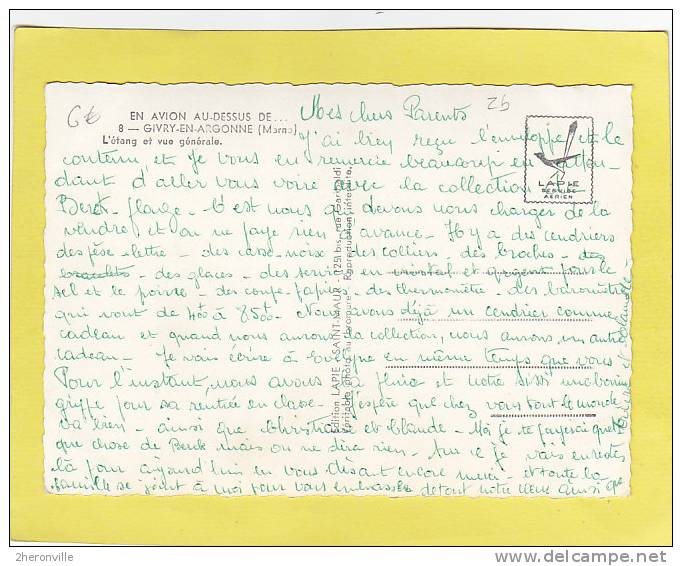 6€
92
EN AVION AU-DESSUS DE...
8 — GIVRY-EN-ARGONNE (Marne)
L'étang et vue générale.
LAPIE
SERVICE
AÉRIEN
Mes chers Parents
J'ai bien reçu l'enveloppe et le
contenu et je vous en remercie beaucoup en atten-
dant d'aller vous voire avec la collection
Berck-plage - C'est nous qui devons nous charger de la
vendre et on ne paye rien d'avance. Il y a des cendriers
des pèse-lettre - des casse-noise, des colliers, des broches - des
bracelets - des glaces - des services en
sel et le poivre - des coupe-papier - des thermomètre - des baromètre
qui vont de 4 à 85 - Nous avons déjà un cendrier comme
cadeau et quand nous aurons la collection, nous aurons un autre
cadeau - Je vais écrire à en même temps que vous
Pour l'instant, nous avons la pluie et notre
griffe pour sa rentrée en classe - J'espère que chez vous tout le monde
va bien - ainsi que Christiane et Claude - Moi je te payerai quel
que chose de Berck mais on ne dira rien. Sur ce je vais en rester
là pour aujourd'hui en vous disant encore merci - et toute la
famille se joint à moi pour vous embrasser de tout notre cœur ainsi que
Edition LAPIE - SAINT-MAUR - (125 bis, rue Garibaldi)
Véritable photo au bromure - Reproduction interdite
2heronville
www.delcampe.net